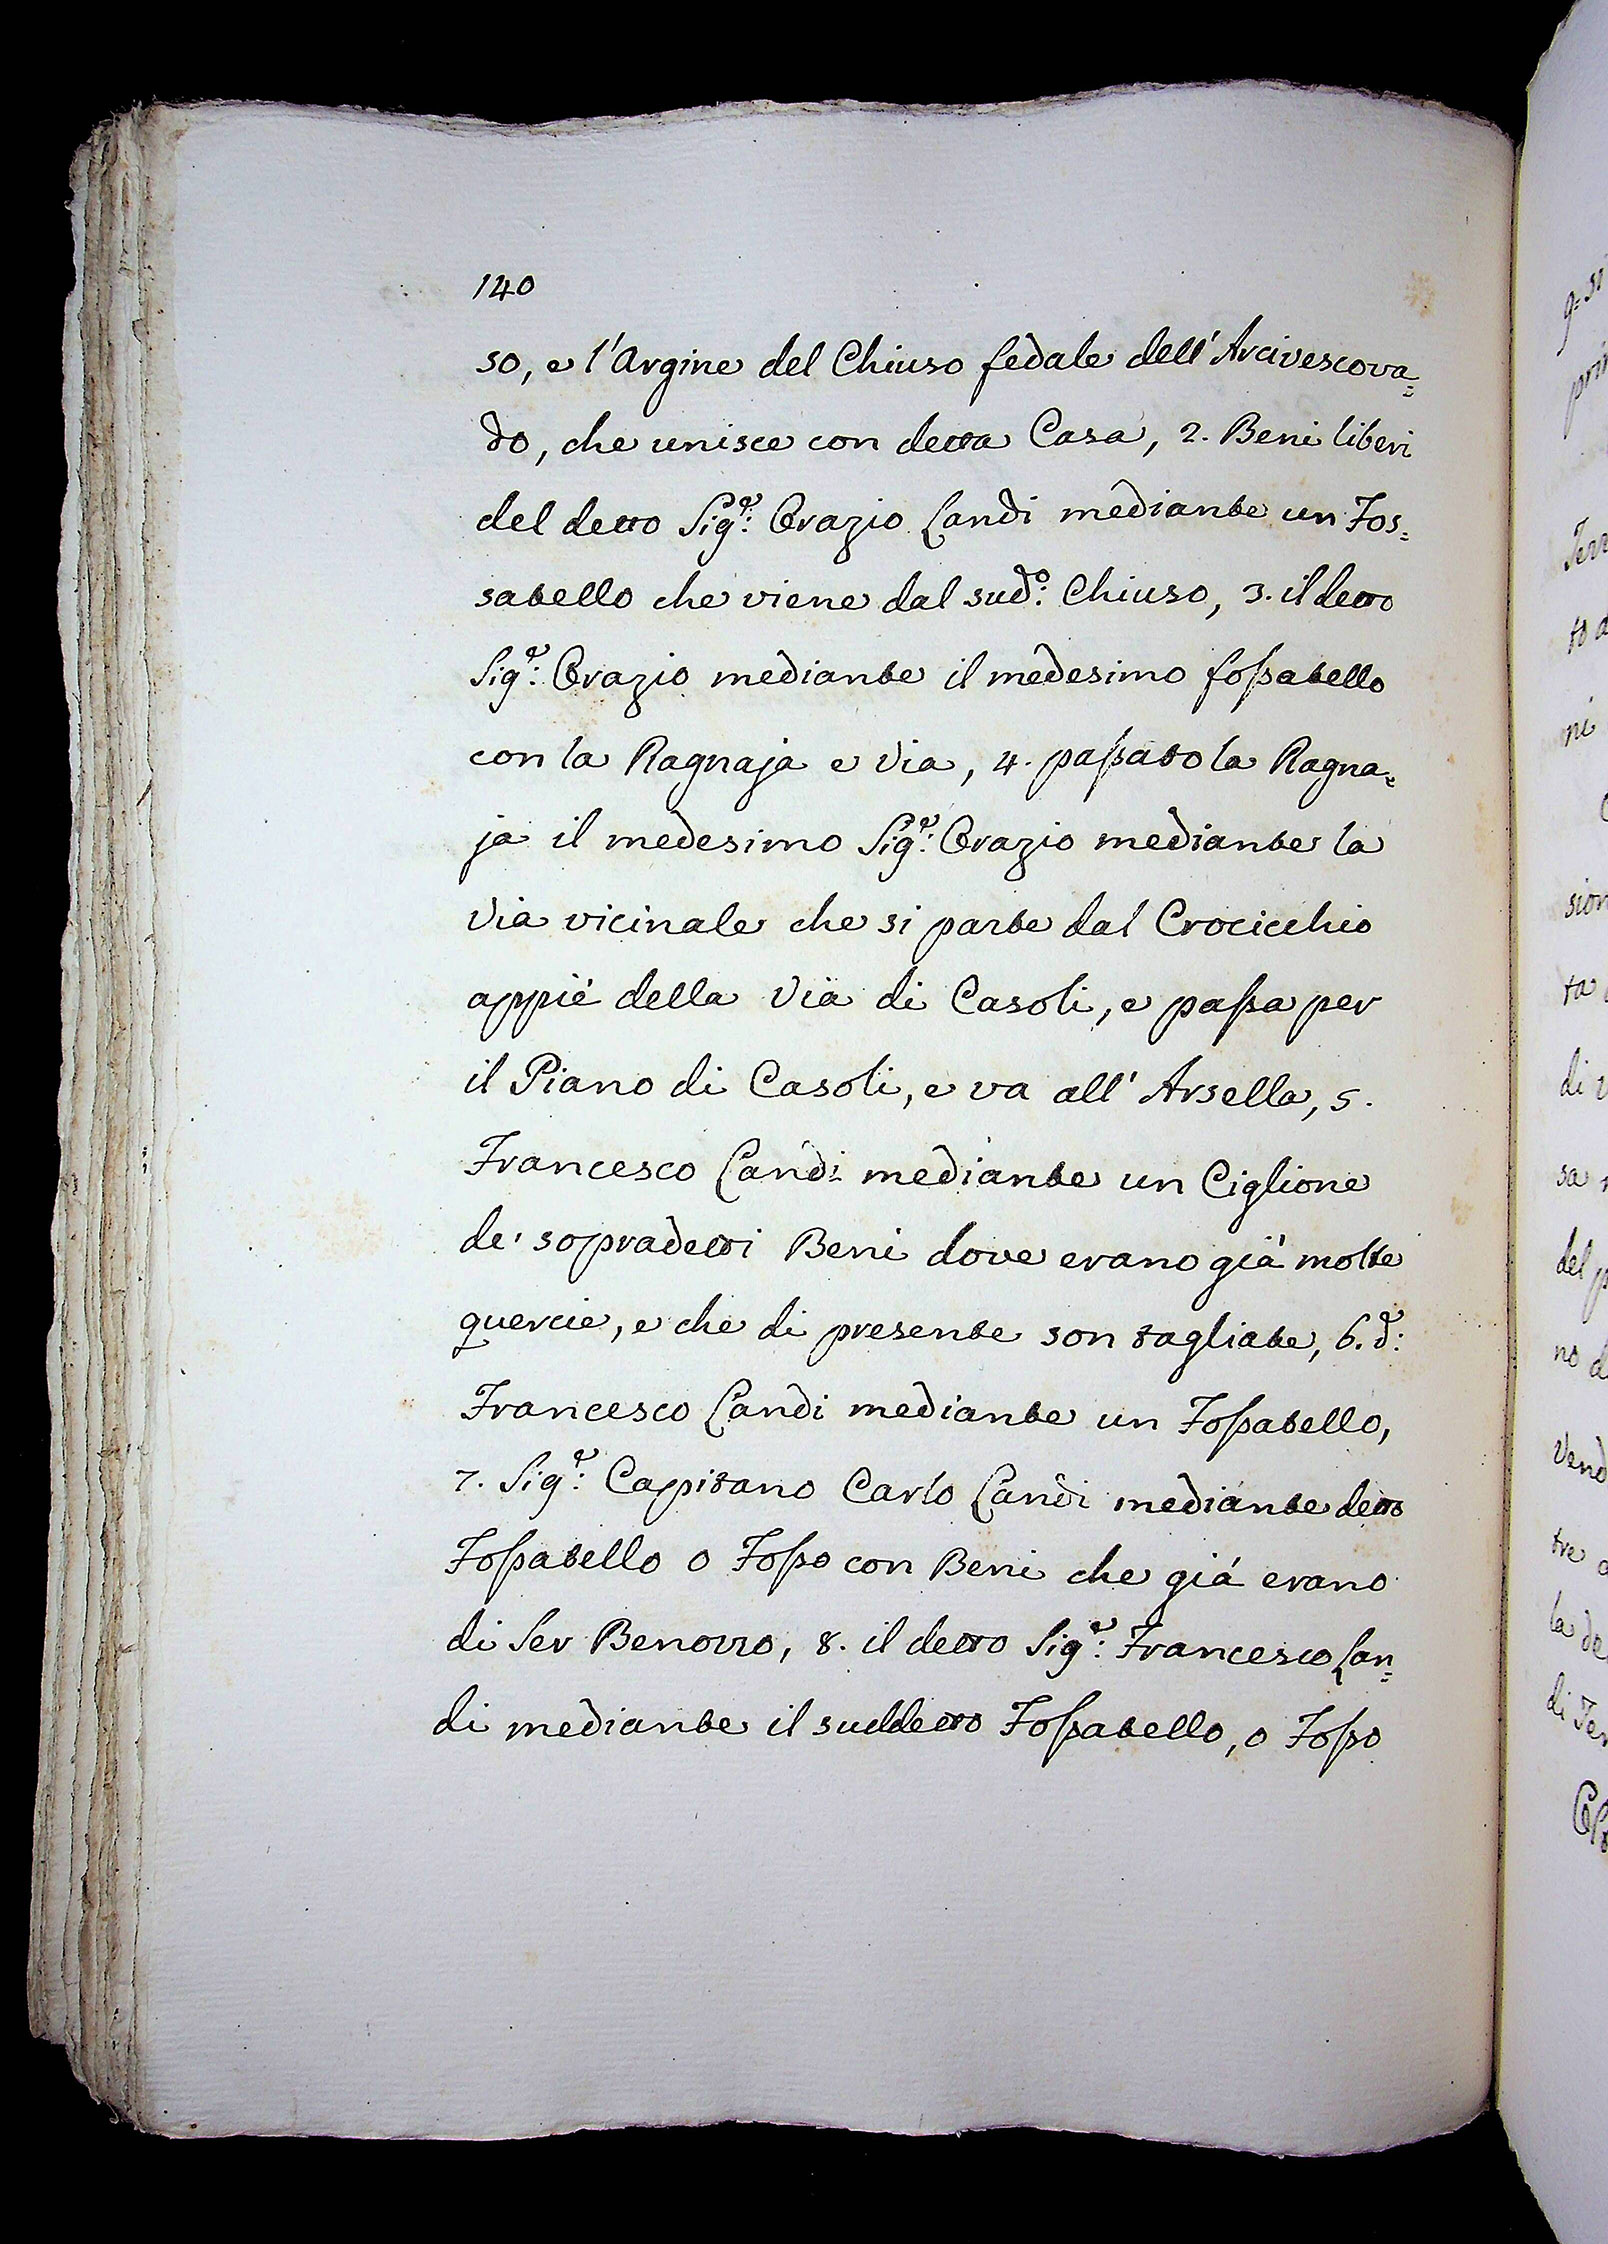 140
so, e l'Argine del Chiuso fedale dell'Arcivescova=
do, che unisce con detta Casa, 2. Beni liberi
del detto Sig.e: Orazio Landi mediante un Fos=
satello che viene dal sud.o: Chiuso, 3. il detto
Sig.e: Orazio mediante il medesimo fossatello
con la Ragnaja e Via, 4. passato la Ragna=
ja il medesimo Sig.e: Orazio mediante la
Via vicinale che si parte dal Crocicchio
appiè della Via di Casoli, e passa per
il Piano di Casoli, e va all'Arsella, 5.
Francesco Landi mediante un Ciglione
de' sopradetti Beni dove erano già molte
quercie, e che di presente son tagliate, 6. d.e:
Francesco Landi mediante un Fossatello,
7. Sig.e: Capitano Carlo Landi mediante detto
Fossatello o Fosso con Beni che già erano
di Ser Benozzo, 8. il detto Sig.e: Francesco Lan=
di mediante il suddetto Fossatello, o Fosso